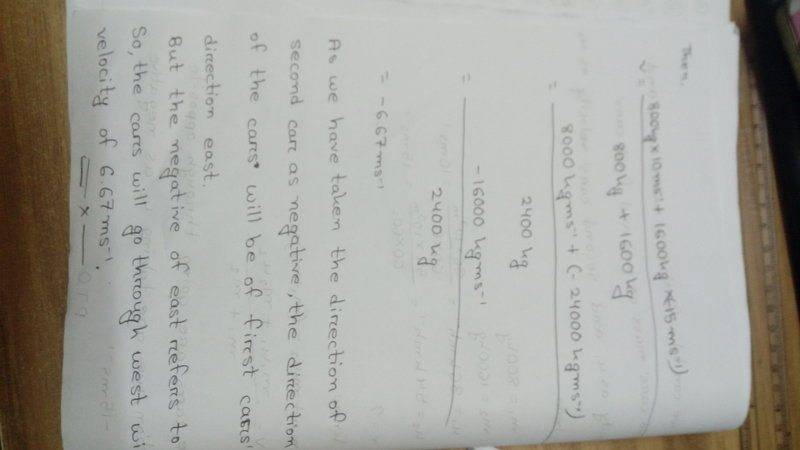 Then,
v = 800kg × 10ms⁻¹ + 1600kg × (-15ms⁻¹)
800kg + 1600kg
= 8000 kgms⁻¹ + (-24000 kgms⁻¹)
2400 kg
= -16000 kgms⁻¹
2400 kg
= -6.67ms⁻¹
As we have taken the direction of
second car as negative, the direction
of the cars will be of first cars'
direction east.
But the negative of east refers to
So, the cars will go through west wi
velocity of 6.67ms⁻¹.